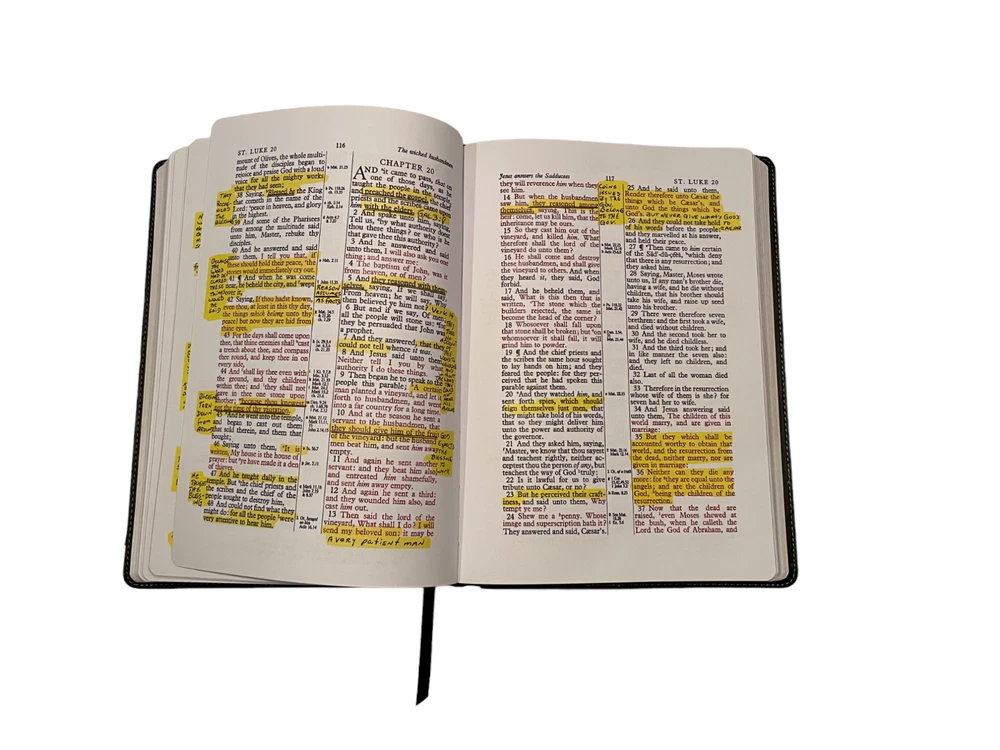 ST. LUKE 20
116
The wicked husbandmen
mount of Olives, the whole multi-
tude of the disciples began to
rejoice and praise God with a loud
voice for all the mighty works
that they had seen;
38 Saying, Blessed be the King
that cometh in the name of the
Lord: peace in heaven, and glory
in the highest.
39 And some of the Pharisees
from among the multitude said
unto him, Master, rebuke thy
disciples.
40 And he answered and said
unto them, I tell you that, if
these should hold their peace, the
stones would immediately cry out.
41 ¶ And when he was come
near, he beheld the city, and wept
over it,
42 Saying, If thou hadst known,
even thou, at least in this day,
the things which belong unto thy
peace! but now they are hid from
thine eyes.
43 For the days shall come upon
thee, that thine enemies shall cast
a trench about thee, and compass
thee round, and keep thee in on
every side,
44 And shall lay thee even with
the ground, and thy children
within thee; and they shall not
leave in thee one stone upon
another; because thou knewest
not the time of thy visitation.
45 And he went into the temple,
and began to cast out them
that sold therein, and them that
bought;
46 Saying unto them, It is
written, My house is the house of
prayer: but ye have made it a den
of thieves.
47 And he taught daily in the
temple. But the chief priests and
the scribes and the chief of the
people sought to destroy him,
48 And could not find what they
might do: for all the people were
very attentive to hear him.
CHAPTER 20
AND it came to pass, that on
one of those days, as he
taught the people in the temple,
and preached the gospel, the chief
priests and the scribes came
with the elders,
2 And spake unto him, saying,
Tell us, by what authority doest
thou these things? or who is he
that gave thee this authority?
3 And he answered and said
unto them, I will also ask you one
thing; and answer me:
4 The baptism of John, was it
from heaven, or of men?
5 And they reasoned with them-
selves, saying, If we shall say,
From heaven; he will say, Why
then believed ye him not?
6 But and if we say, Of men;
all the people will stone us: for
they be persuaded that John was
a prophet.
7 And they answered, that they
could not tell whence it was.
8 And Jesus said unto them,
Neither tell I you by what
authority I do these things.
9 Then began he to speak to the
people this parable; A certain
man planted a vineyard, and let it
forth to husbandmen, and went
into a far country for a long time.
10 And at the season he sent a
servant to the husbandmen, that
they should give him of the fruit
of the vineyard: but the husbandmen
beat him, and sent him away
empty.
11 And again he sent another
servant: and they beat him also,
and entreated him shamefully,
and sent him away empty.
12 And again he sent a third:
and they wounded him also, and
cast him out.
13 Then said the lord of the
vineyard, What shall I do? I will
send my beloved son: it may be
A VERY PATIENT MAN
Jesus answers the Sadducees
117
ST. LUKE 20
they will reverence him when they
see him.
14 But when the husbandmen
saw him, they reasoned among
themselves, saying, This is the
heir: come, let us kill him, that the
inheritance may be ours.
15 So they cast him out of the
vineyard, and killed him. What
therefore shall the lord of the
vineyard do unto them?
16 He shall come and destroy
these husbandmen, and shall give
the vineyard to others. And when
they heard it, they said, God
forbid.
17 And he beheld them, and
said, What is this then that is
written, The stone which the
builders rejected, the same is
become the head of the corner?
18 Whosoever shall fall upon
that stone shall be broken; but on
whomsoever it shall fall, it will
grind him to powder.
19 ¶ And the chief priests and
the scribes the same hour sought
to lay hands on him; and they
feared the people: for they per-
ceived that he had spoken this
parable against them.
20 And they watched him, and
sent forth spies, which should
feign themselves just men, that
they might take hold of his words,
that so they might deliver him
unto the power and authority of
the governor.
21 And they asked him, saying,
Master, we know that thou sayest
and teachest rightly, neither ac-
ceptest thou the person of any, but
teachest the way of God truly:
22 Is it lawful for us to give
tribute unto Cæsar, or no?
23 But he perceived their craft-
iness, and said unto them, Why
tempt ye me?
24 Shew me a penny. Whose
image and superscription hath it?
They answered and said, Cæsar's.
25 And he said unto them,
Render therefore unto Cæsar the
things which be Cæsar's, and
unto God the things which be
God's. BUT NEVER GIVE WHAT'S GOD'S
26 And they could not take hold TO
of his words before the people: CAESAR
and they marvelled at his answer,
and held their peace.
27 ¶ Then came to him certain
of the Săd'-dū-çēēs, which deny
that there is any resurrection; and
they asked him,
28 Saying, Master, Moses wrote
unto us, If any man's brother die,
having a wife, and he die without
children, that his brother should
take his wife, and raise up seed
unto his brother.
29 There were therefore seven
brethren: and the first took a wife,
and died without children.
30 And the second took her to
wife, and he died childless.
31 And the third took her; and
in like manner the seven also:
and they left no children, and
died.
32 Last of all the woman died
also.
33 Therefore in the resurrection
whose wife of them is she? for
seven had her to wife.
34 And Jesus answering said
unto them, The children of this
world marry, and are given in
marriage:
35 But they which shall be
accounted worthy to obtain that
world, and the resurrection from
the dead, neither marry, nor are
given in marriage:
36 Neither can they die any
more: for they are equal unto the
angels; and are the children of
God, being the children of the
resurrection.
37 Now that the dead are
raised, even Moses shewed at
the bush, when he calleth the
Lord the God of Abraham, and